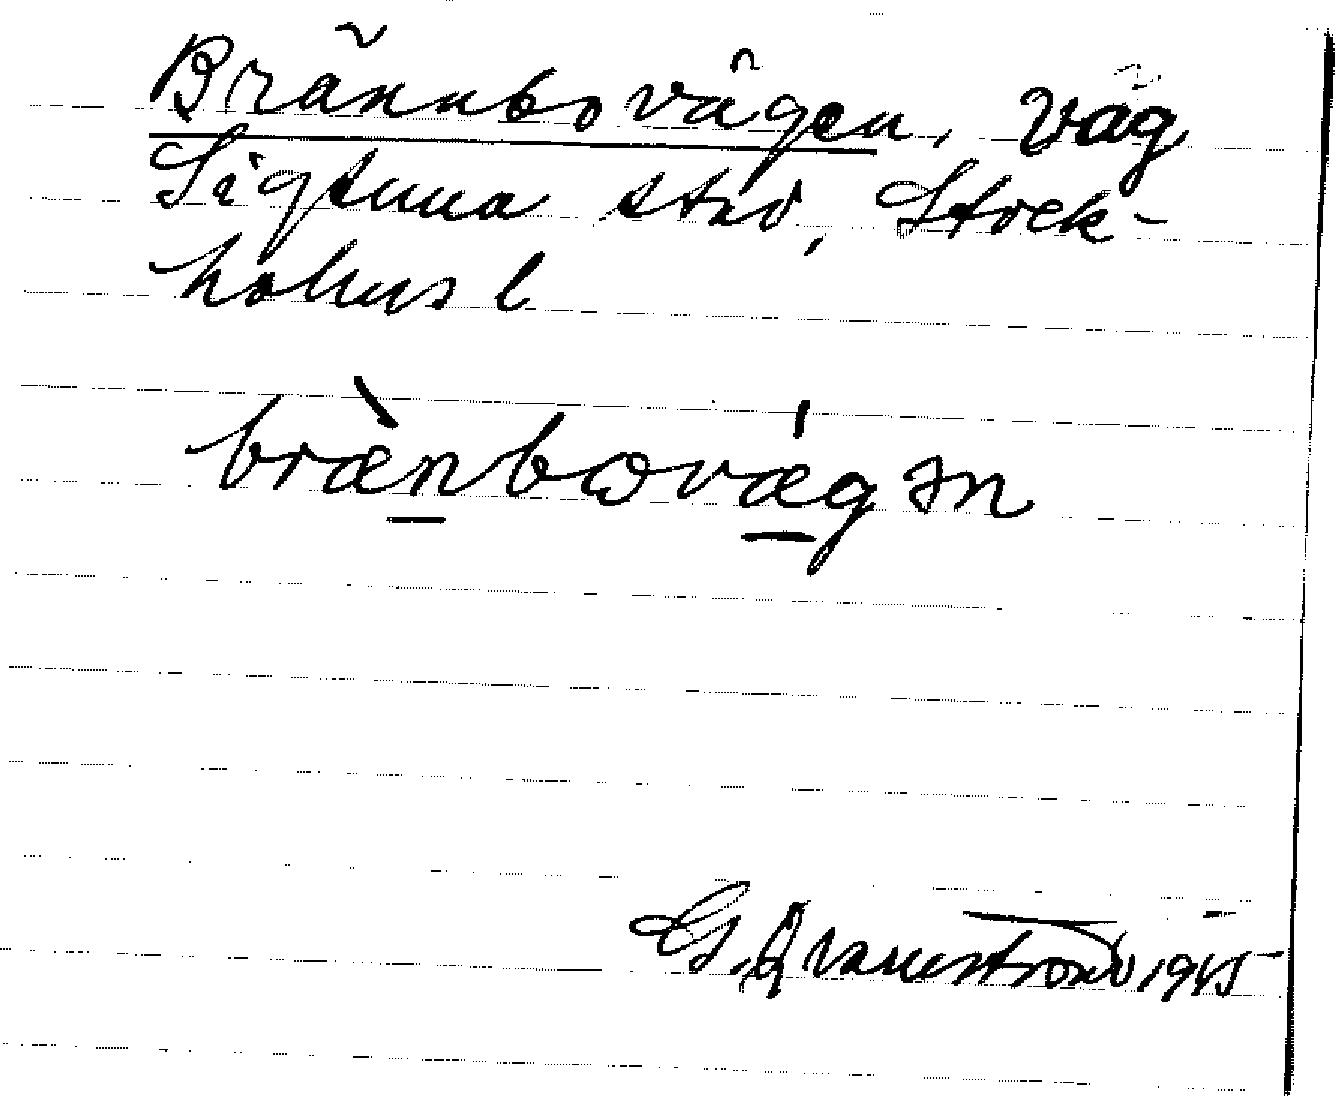 Brännbovägen, väg
Sigtuna stad, Stock-
holms l
brænbωvægən
G. Qvarnström 1945